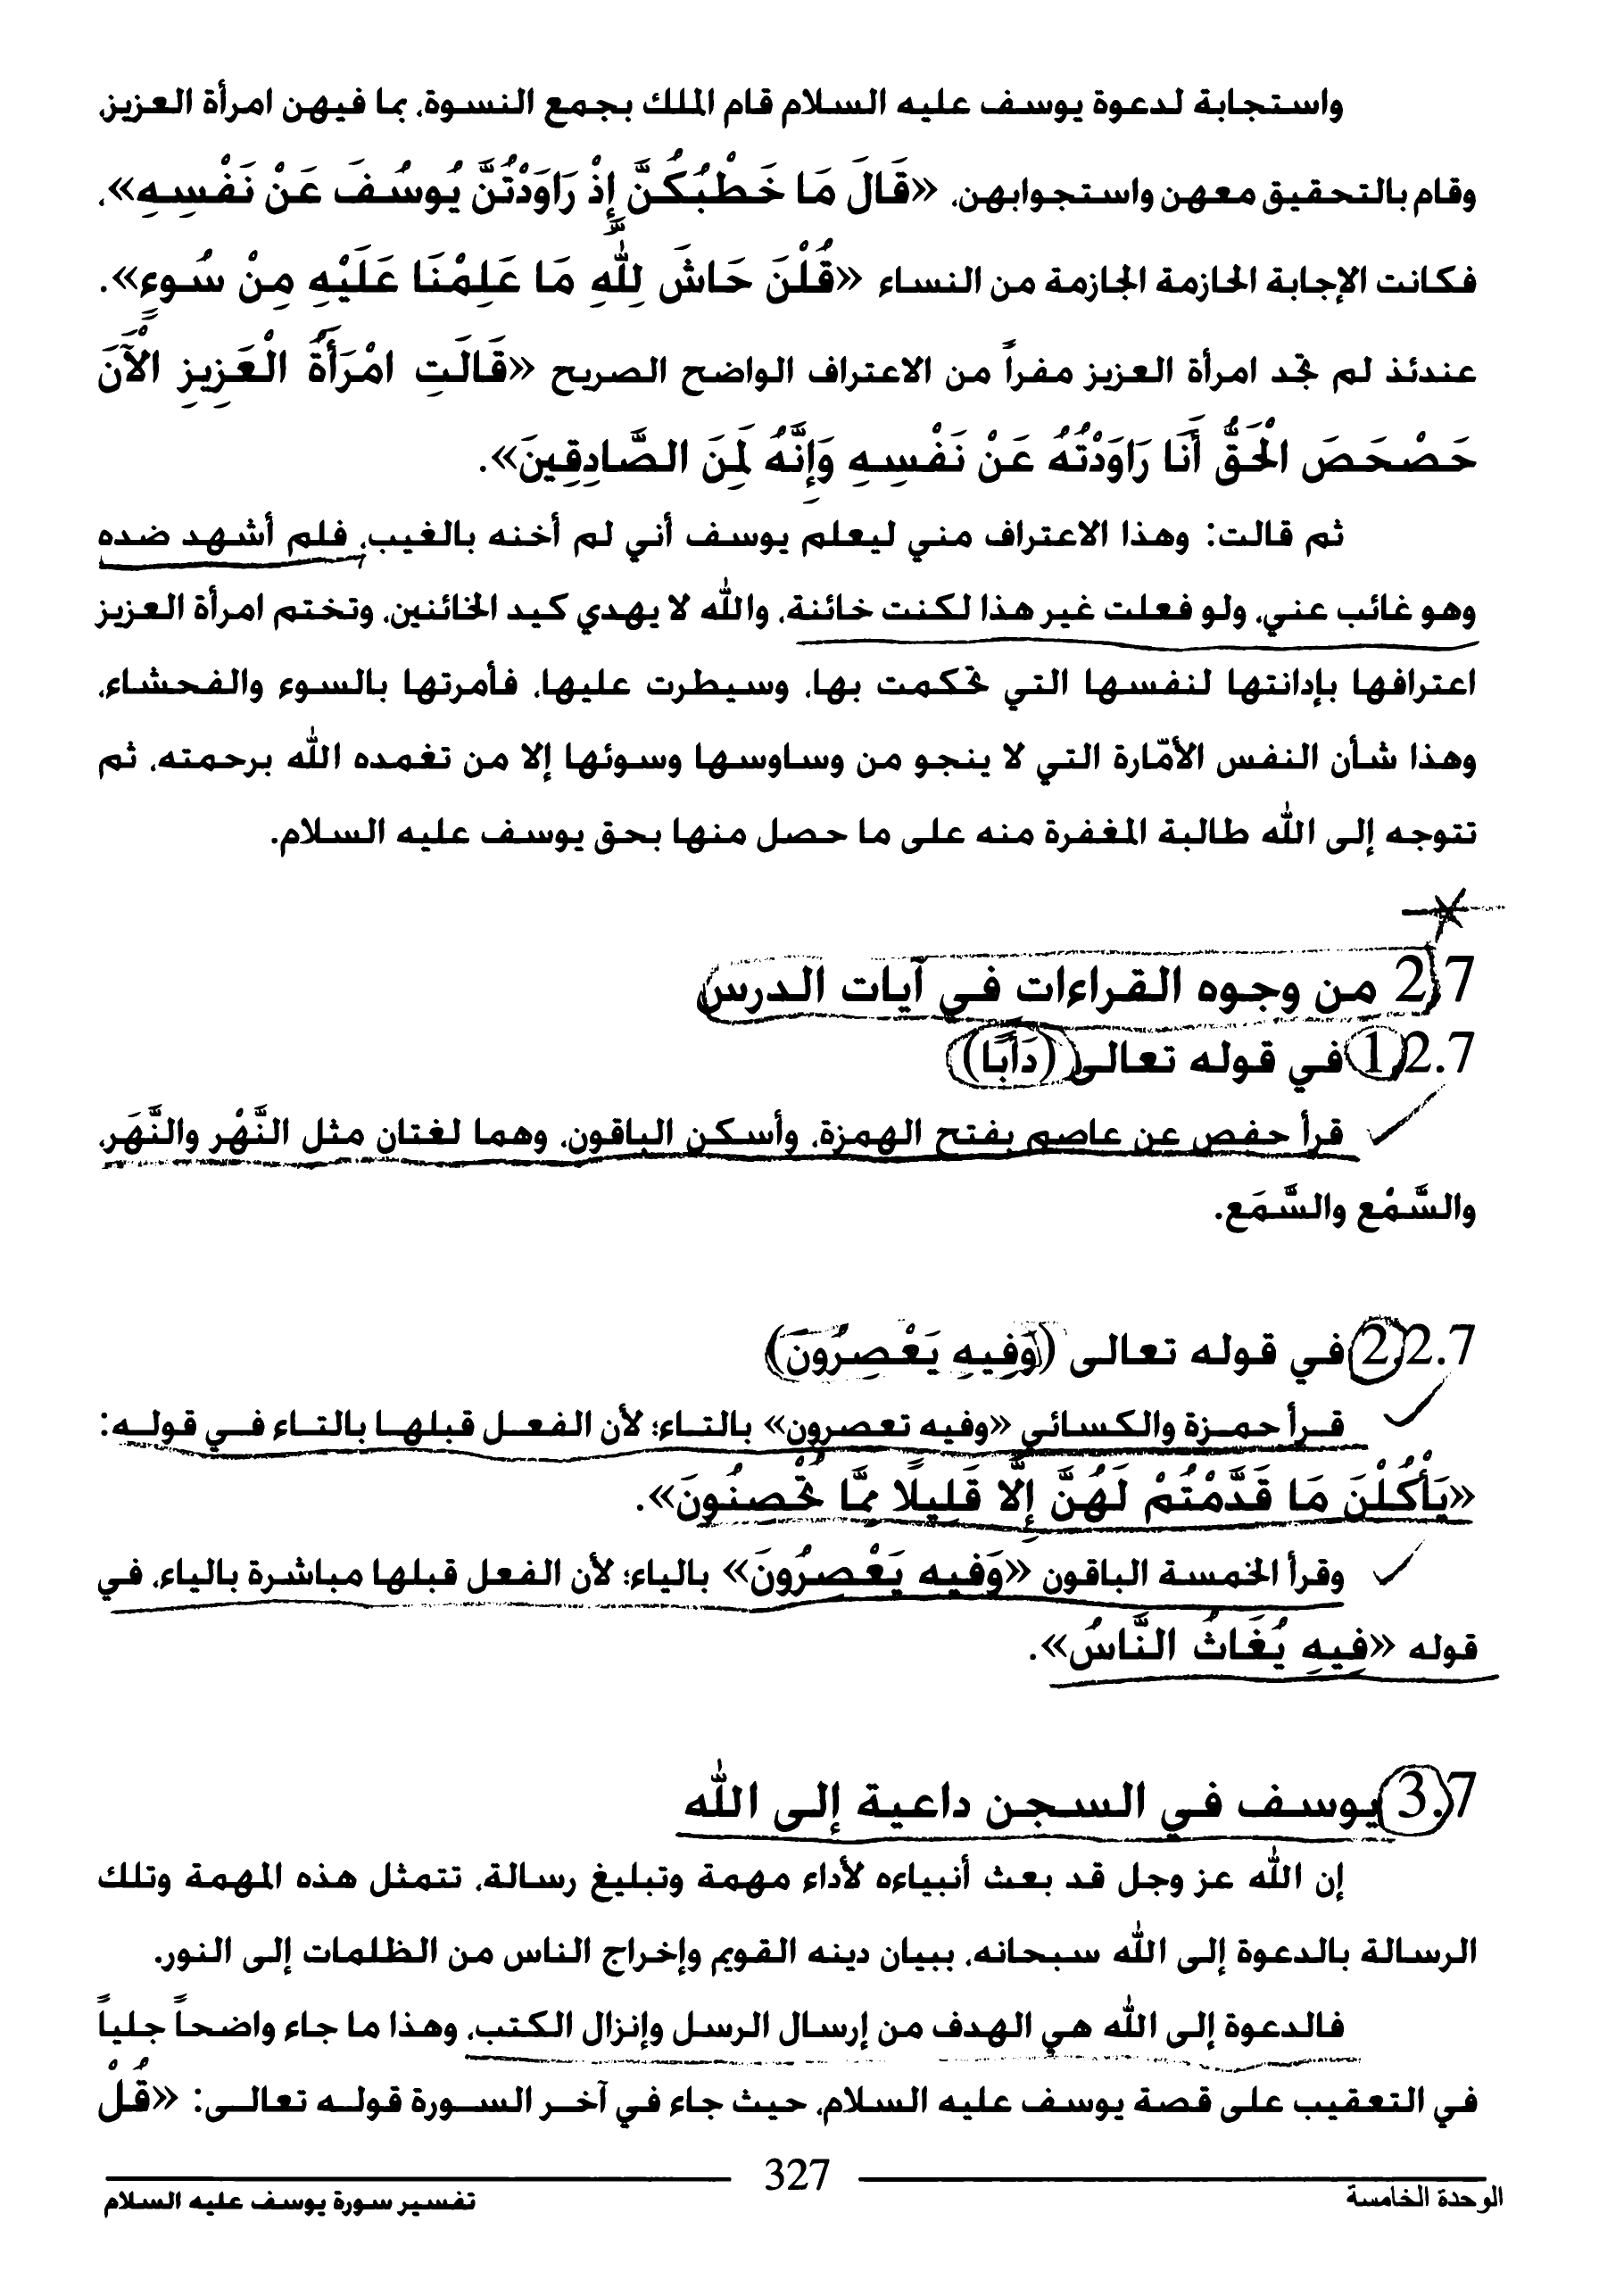 واستجابة لدعوة يوسف عليه السلام قام الملك بجمع النسوة، بما فيهن امرأة العزيز،
وقام بالتحقيق معهن واستجوابهن، «قَالَ مَا خَطْبُكُنَّ إِذْ رَاوَدْتُنَّ يُوسُفَ عَنْ نَفْسِهِ»،
فكانت الإجابة الحازمة الجازمة من النساء «قُلْنَ حَاشَ لِلَّهِ مَا عَلِمْنَا عَلَيْهِ مِنْ سُوءٍ».
عندئذ لم تجد امرأة العزيز مفراً من الاعتراف الواضح الصريح «قَالَتِ امْرَأَةُ الْعَزِيزِ الْآَنَ
حَصْحَصَ الْحَقُّ أَنَا رَاوَدْتُهُ عَنْ نَفْسِهِ وَإِنَّهُ لَمِنَ الصَّادِقِينَ».
ثم قالت: وهذا الاعتراف مني ليعلم يوسف أني لم أخنه بالغيب، فلم أشهد ضده
وهو غائب عني، ولو فعلت غير هذا لكنت خائنة، والله لا يهدي كيد الخائنين، وتختم امرأة العزيز
اعترافها بإدانتها لنفسها التي تحكمت بها، وسيطرت عليها، فأمرتها بالسوء والفحشاء،
وهذا شأن النفس الأمّارة التي لا ينجو من وساوسها وسوئها إلا من تغمده الله برحمته، ثم
تتوجه إلى الله طالبة المغفرة منه على ما حصل منها بحق يوسف عليه السلام.
2.7 من وجوه القراءات في آيات الدرس
1.2.7 في قوله تعالى ((دَأَبًا))
قرأ حفص عن عاصم بفتح الهمزة، وأسكن الباقون، وهما لغتان مثل النَّهْر والنَّهَر،
والسَّمْع والسَّمَع.
2.2.7 في قوله تعالى (وَفِيهِ يَعْصِرُونَ)
قرأ حمزة والكسائي «وفيه تعصرون» بالتاء؛ لأن الفعل قبلها بالتاء في قوله:
«يَأْكُلْنَ مَا قَدَّمْتُمْ لَهُنَّ إِلَّا قَلِيلًا مِمَّا تُحْصِنُونَ».
وقرأ الخمسة الباقون «وَفِيهِ يَعْصِرُونَ» بالياء؛ لأن الفعل قبلها مباشرة بالياء، في
قوله «فِيهِ يُغَاثُ النَّاسُ».
3.7 يوسف في السجن داعية إلى الله
إن الله عز وجل قد بعث أنبياءه لأداء مهمة وتبليغ رسالة، تتمثل هذه المهمة وتلك
الرسالة بالدعوة إلى الله سبحانه، ببيان دينه القويم وإخراج الناس من الظلمات إلى النور.
فالدعوة إلى الله هي الهدف من إرسال الرسل وإنزال الكتب، وهذا ما جاء واضحاً جلياً
في التعقيب على قصة يوسف عليه السلام، حيث جاء في آخر السورة قوله تعالى: «قُلْ
327
الوحدة الخامسة
تفسير سورة يوسف عليه السلام